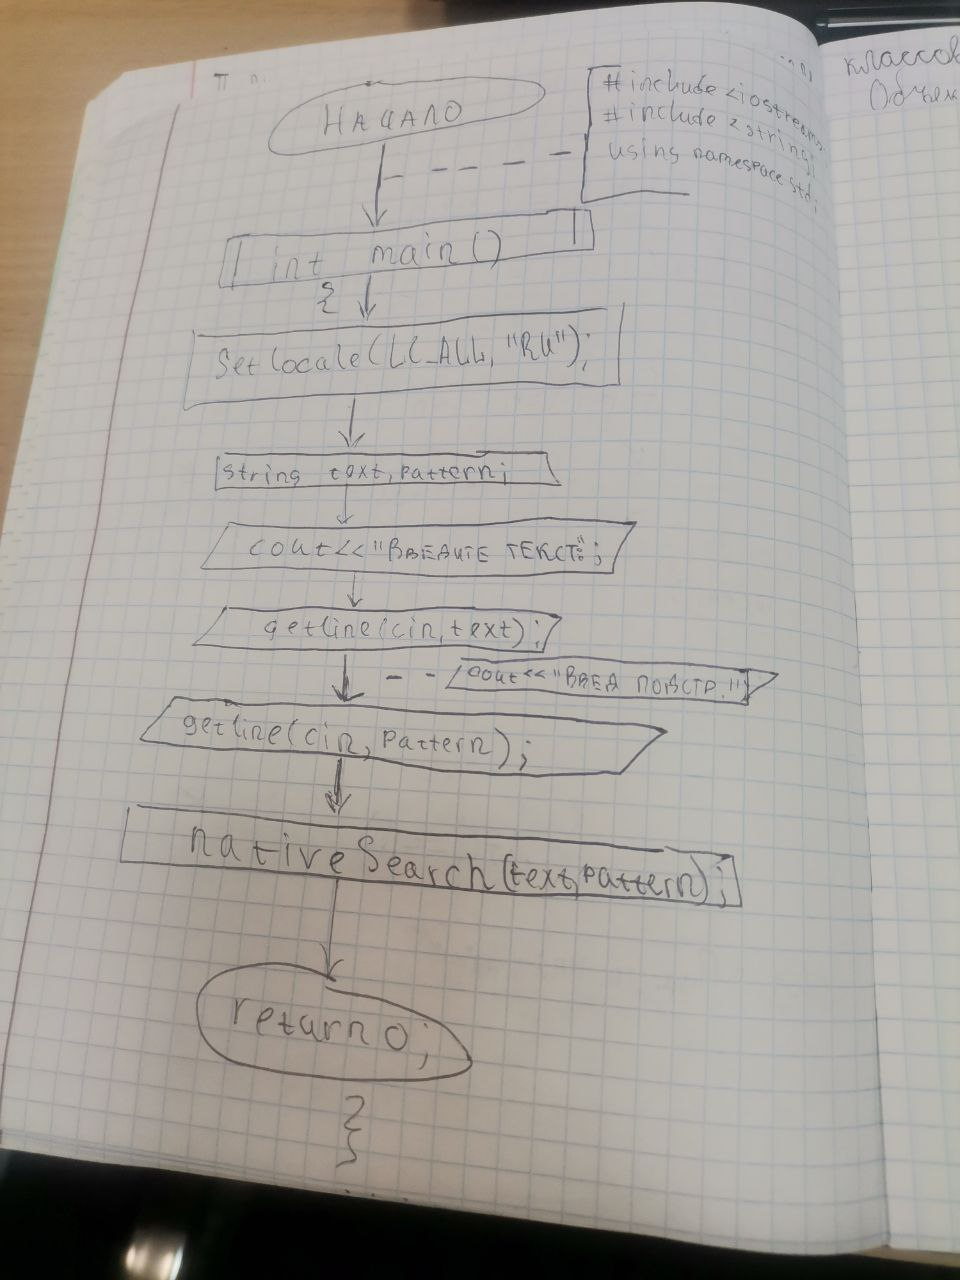 П п.
НАЧАЛО
#include <iostream>
#include <string>
using namespace std;
int main()
{
Setlocale(LC_ALL, "RU");
string text, pattern;
cout<<"ВВЕДИТЕ ТЕКСТ:";
getline(cin, text);
cout<<"ВВЕД ПОДСТР."
getline(cin, pattern);
nativeSearch(text, pattern);
return 0;
}
классов
Объек